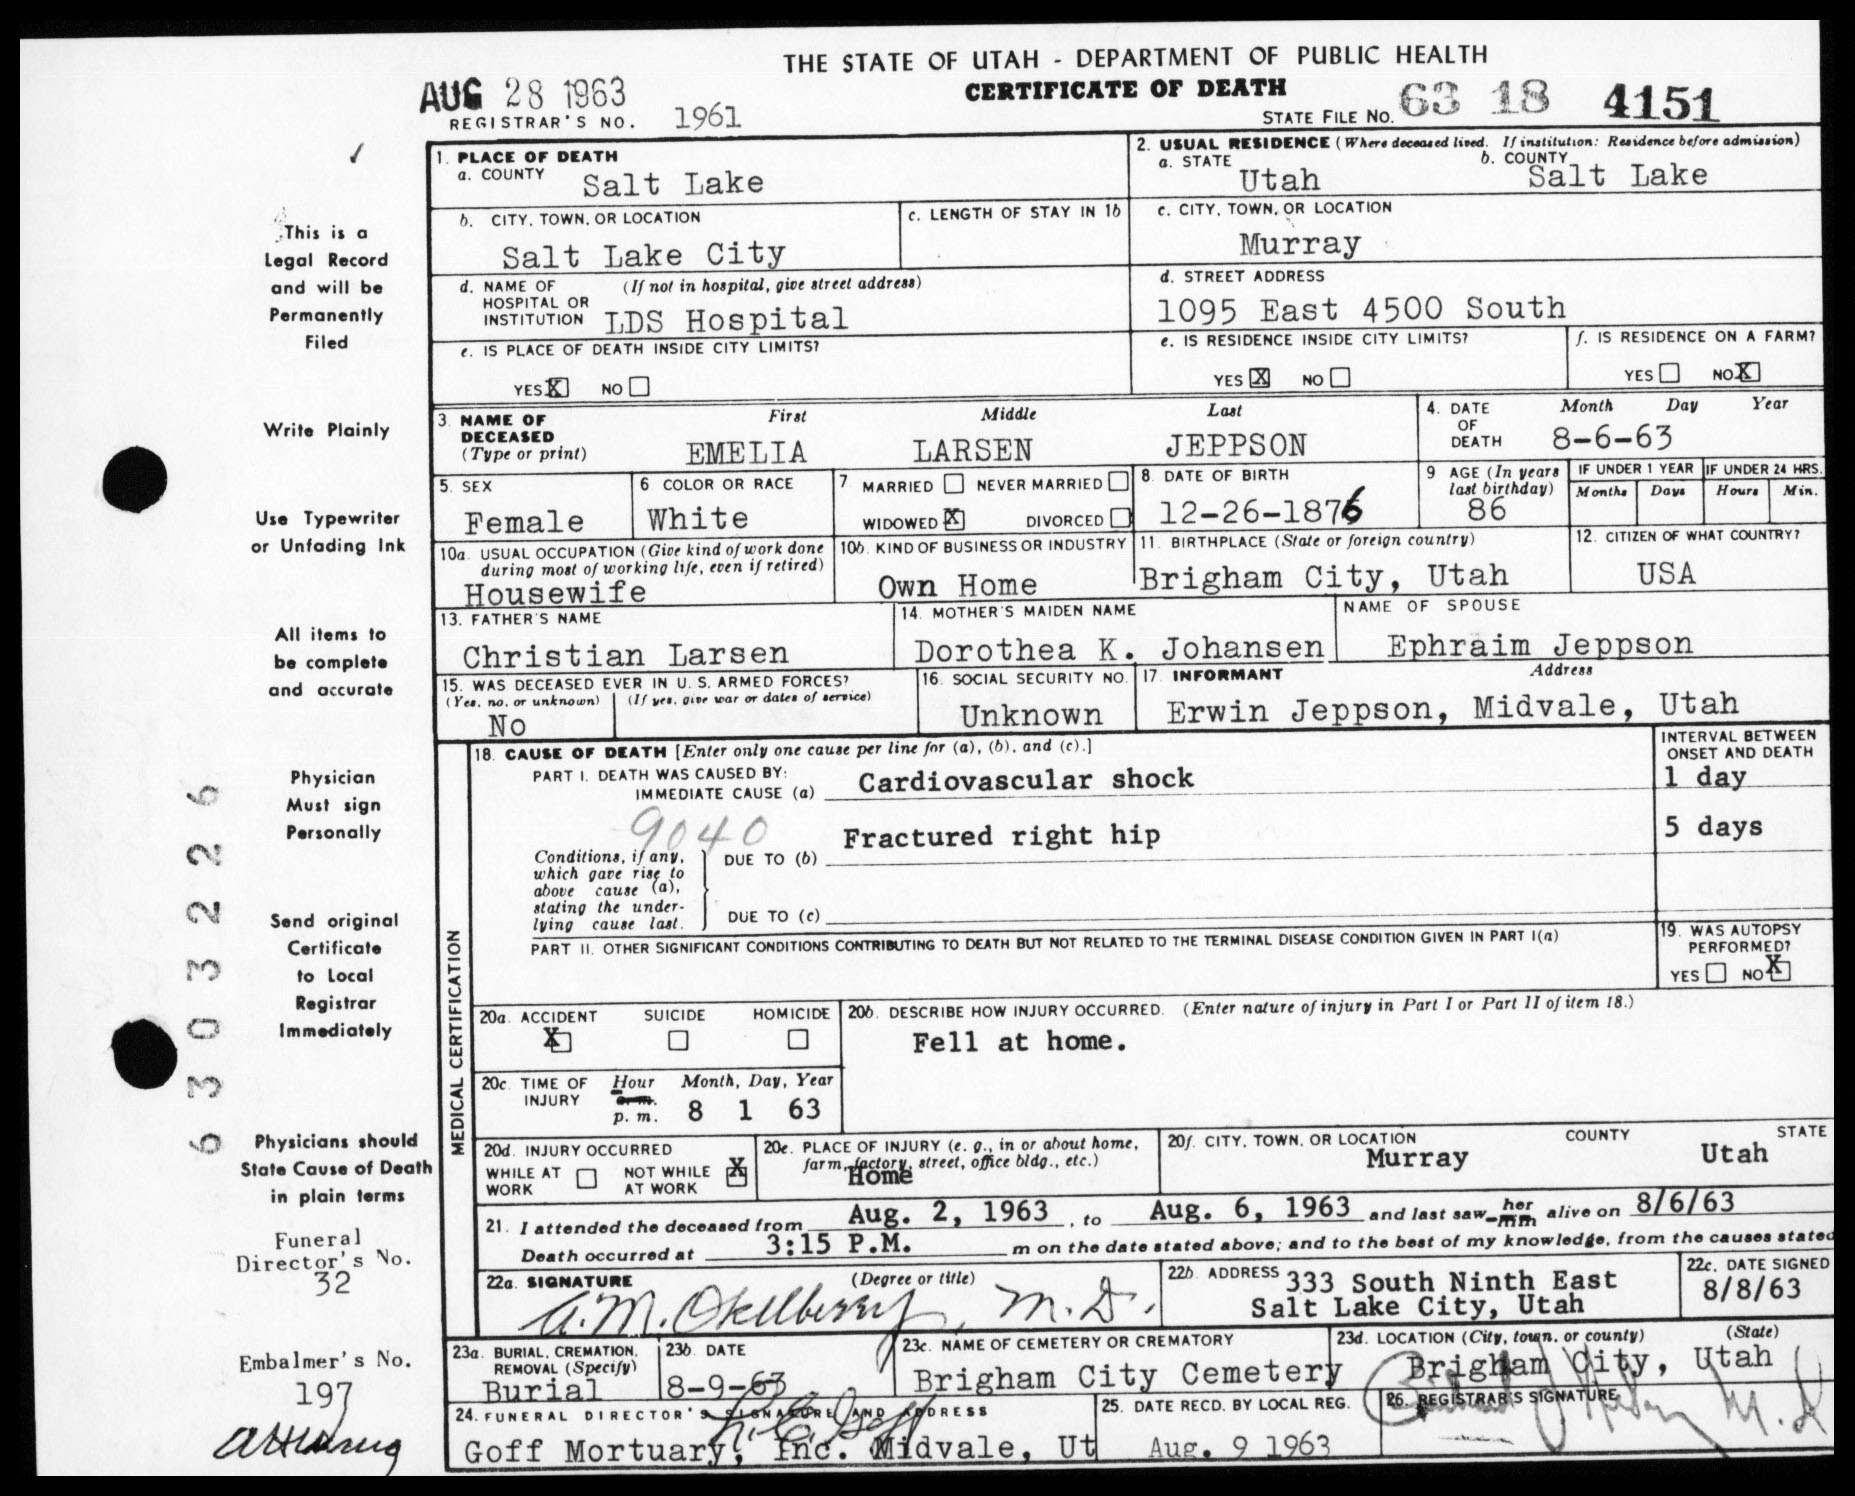 THE STATE OF UTAH - DEPARTMENT OF PUBLIC HEALTH
AUG 28 1963
CERTIFICATE OF DEATH
REGISTRAR'S NO. 1961
STATE FILE NO. 63 18 4151
1. PLACE OF DEATH
a. COUNTY Salt Lake
2. USUAL RESIDENCE (Where deceased lived. If institution: Residence before admission)
a. STATE Utah b. COUNTY Salt Lake
b. CITY, TOWN, OR LOCATION Salt Lake City
c. LENGTH OF STAY IN 1b
c. CITY, TOWN, OR LOCATION Murray
d. NAME OF HOSPITAL OR INSTITUTION (If not in hospital, give street address) LDS Hospital
d. STREET ADDRESS 1095 East 4500 South
e. IS PLACE OF DEATH INSIDE CITY LIMITS?
YES X NO
e. IS RESIDENCE INSIDE CITY LIMITS?
YES X NO
f. IS RESIDENCE ON A FARM?
YES NO X
3. NAME OF DECEASED (Type or print)
First Middle Last
EMELIA LARSEN JEPPSON
4. DATE OF DEATH Month Day Year
8-6-63
5. SEX Female
6 COLOR OR RACE White
7. MARRIED NEVER MARRIED
WIDOWED X DIVORCED
8. DATE OF BIRTH 12-26-1876
9 AGE (In years last birthday) 86
IF UNDER 1 YEAR Months Days
IF UNDER 24 HRS. Hours Min.
10a. USUAL OCCUPATION (Give kind of work done during most of working life, even if retired) Housewife
10b. KIND OF BUSINESS OR INDUSTRY Own Home
11. BIRTHPLACE (State or foreign country) Brigham City, Utah
12. CITIZEN OF WHAT COUNTRY? USA
13. FATHER'S NAME Christian Larsen
14. MOTHER'S MAIDEN NAME Dorothea K. Johansen
NAME OF SPOUSE Ephraim Jeppson
15. WAS DECEASED EVER IN U. S. ARMED FORCES?
(Yes, no, or unknown) No (If yes, give war or dates of service)
16. SOCIAL SECURITY NO. Unknown
17. INFORMANT Address
Erwin Jeppson, Midvale, Utah
MEDICAL CERTIFICATION
18. CAUSE OF DEATH [Enter only one cause per line for (a), (b), and (c).]
INTERVAL BETWEEN ONSET AND DEATH
PART I. DEATH WAS CAUSED BY:
IMMEDIATE CAUSE (a) Cardiovascular shock 1 day
9040
Conditions, if any, which gave rise to above cause (a), stating the underlying cause last.
DUE TO (b) Fractured right hip 5 days
DUE TO (c)
PART II. OTHER SIGNIFICANT CONDITIONS CONTRIBUTING TO DEATH BUT NOT RELATED TO THE TERMINAL DISEASE CONDITION GIVEN IN PART I(a)
19. WAS AUTOPSY PERFORMED?
YES NO X
20a. ACCIDENT SUICIDE HOMICIDE
X
20b. DESCRIBE HOW INJURY OCCURRED. (Enter nature of injury in Part I or Part II of item 18.)
Fell at home.
20c. TIME OF INJURY Hour Month, Day, Year
a.m.
p. m. 8 1 63
20d. INJURY OCCURRED
WHILE AT WORK NOT WHILE AT WORK X
20e. PLACE OF INJURY (e. g., in or about home, farm, factory, street, office bldg., etc.) Home
20f. CITY, TOWN, OR LOCATION COUNTY STATE
Murray Utah
21. I attended the deceased from Aug. 2, 1963, to Aug. 6, 1963 and last saw her him alive on 8/6/63
Death occurred at 3:15 P.M. m on the date stated above; and to the best of my knowledge, from the causes stated
22a. SIGNATURE (Degree or title)
A.M. Okelberry, M.D.
22b. ADDRESS 333 South Ninth East
Salt Lake City, Utah
22c. DATE SIGNED 8/8/63
23a. BURIAL, CREMATION, REMOVAL (Specify) Burial
23b. DATE 8-9-63
23c. NAME OF CEMETERY OR CREMATORY Brigham City Cemetery
23d. LOCATION (City, town, or county) (State)
Brigham City, Utah
24. FUNERAL DIRECTOR'S SIGNATURE AND ADDRESS
Goff Mortuary, Inc. Midvale, Ut
25. DATE RECD. BY LOCAL REG. Aug. 9 1963
26. REGISTRAR'S SIGNATURE
This is a
Legal Record
and will be
Permanently
Filed
Write Plainly
Use Typewriter
or Unfading Ink
All items to
be complete
and accurate
Physician
Must sign
Personally
Send original
Certificate
to Local
Registrar
Immediately
Physicians should
State Cause of Death
in plain terms
Funeral
Director's No.
32
Embalmer's No.
197
6 3 0 3 2 2 6